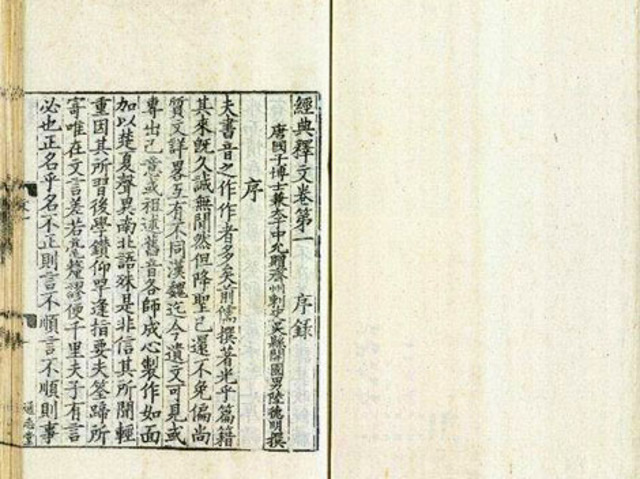 經典釋文卷第一 序録
唐國子博士兼太子中允贈齊州刺史吳縣開國男陸德明撰
序
夫書音之作作者多矣前儒撰著光乎篇籍
其來既久誠無閒然但降聖已還不免偏尚
質文詳畧互有不同漢魏迄今遺文可見或
專出己意或祖述舊音各師成心製作如面
加以楚夏聲異南北語殊是非信其所聞輕
重因其所習後學鑽仰罕逢指要夫筌蹄所
寄唯在文言差若毫釐謬便千里夫子有言
必也正名乎名不正則言不順言不順則事
通志堂